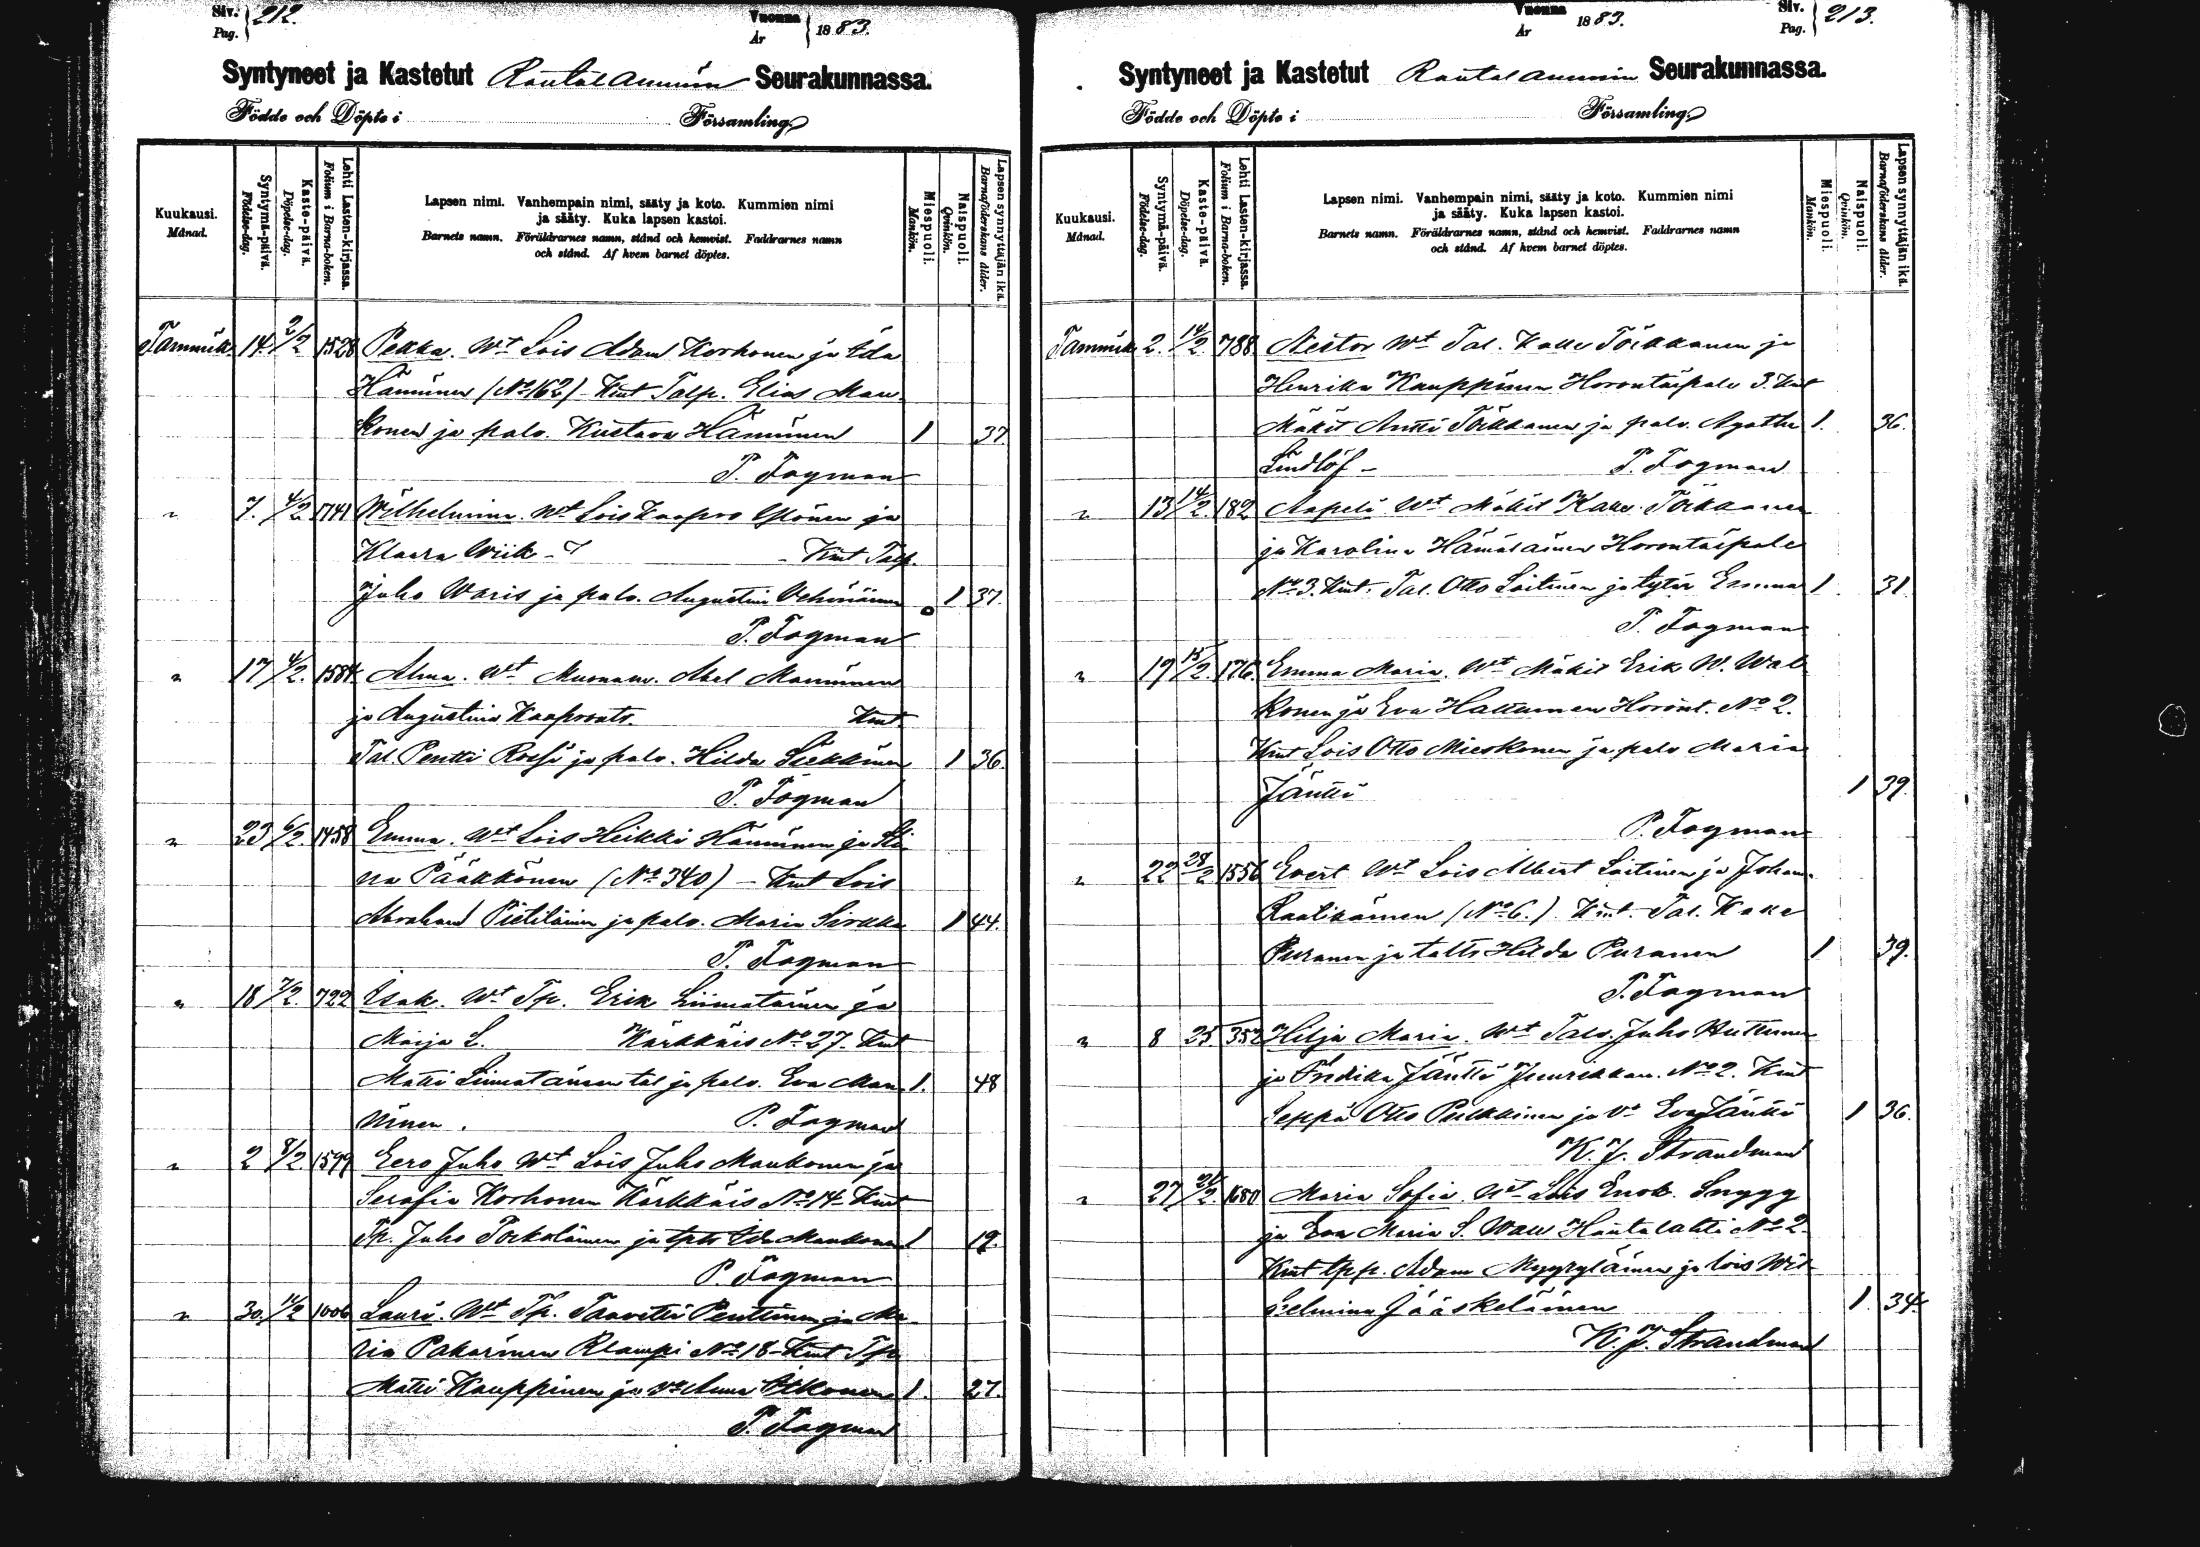 Siv. Pag. } 212.
Vuonna År } 1883.
Syntyneet ja Kastetut Rautalammin Seurakunnassa.
Födde och Döpte i Församling
Kuukausi. Månad.
Syntymä-päivä. Födelse-dag.
Kaste-päivä. Döpelse-dag.
Lehti Lasten-kirjassa. Folium i Barna-boken.
Lapsen nimi. Vanhempain nimi, sääty ja koto. Kummien nimi
ja sääty. Kuka lapsen kastoi.
Barnets namn. Föräldrarnes namn, stånd och hemvist. Faddrarnes namn
och stånd. Af hvem barnet döptes.
Miespuoli. Mankön.
Naispuoli. Qvinkön.
Lapsen synnyttäjän ikä. Barnaföderskans ålder.
Tammik. 14. 2/2 1528 Pekka. Wt Lois Adam Korhonen ja Ida
Hänninen (No 162) - Kmt Talp. Elias Man-
konen ja palv. Kustava Hänninen 1 37
P. Fogman
" 7. 4/2 1741 Wilhelmiina. Wt Lois Kaapro Ikönen ja
Klaara Wiik - Kmt Talp.
Juho Waris ja palv. Augustina Vehniäinen 1 37.
P. Fogman
" 17 4/2. 1584. Alma. Wt Muonam. Abel Manninen
ja Augustina Kaapronts. Kmt.
Tal. Pentti Rossi ja palv. Hilda Siekkinen 1 36.
P. Fogman
" 23 6/2. 1458 Emma. Wt Lois Heikki Hänninen ja Sti-
na Pääkkönen (No 340) - Kmt Lois
Abraham Pietiläinen ja palv. Maria Sirkka 1 44.
P. Fogman
" 18 7/2. 722 Isak. Wt Tp. Erik Liimatainen ja
Maija L. Kärkkäis No 27. Kmt
Matti Liimatainen tal ja palv. Eva Man- 1. 48
ninen. P. Fogman
" 2 8/2. 1599 Eero Juho Wt Lois Juho Mankonen ja
Serafia Korhonen Kärkkäis No 14 Kmt
Tp. Juho Tockoläinen ja tptr Ida Mankonen 1 19.
P. Fogman
" 30. 11/2 1006 Lauri. Wt Tp. Taavetti Penttinen ja Ma-
ria Pakarinen Rlampi No 18 - Kmt Tp
Matti Kauppinen ja vo Anna Itkonen 1. 27.
P. Fogman
Vuonna År 1883.
Siv. Pag. } 213.
Syntyneet ja Kastetut Rautalammin Seurakunnassa.
Födde och Döpte i Församling
Kuukausi. Månad.
Syntymä-päivä. Födelse-dag.
Kaste-päivä. Döpelse-dag.
Lehti Lasten-kirjassa. Folium i Barna-boken.
Lapsen nimi. Vanhempain nimi, sääty ja koto. Kummien nimi
ja sääty. Kuka lapsen kastoi.
Barnets namn. Föräldrarnes namn, stånd och hemvist. Faddrarnes namn
och stånd. Af hvem barnet döptes.
Miespuoli. Mankön.
Naispuoli. Qvinkön.
Lapsen synnyttäjän ikä. Barnaföderskans ålder.
Tammik 2. 14/2. 788. Nestor Wt Tal. Kalle Töikkanen ja
Henrika Kauppinen Horontaipale 3. Kmt
Mäkit Antti Töikkanen ja palv. Agatha 1. 36.
Lindlöf - P. Fogman
" 13 14/2. 182 Aapeli Wt Mäkit Kalle Töikkanen
ja Karolina Hämäläinen Horontaipale
No 3. Kmt. Tal. Otto Laitinen ja tytär Emma 1. 31.
P. Fogman
" 19 15/2. 176. Emma Maria. Wt Mäkit Erik W. Wal-
konen ja Eva Hakkunen Horont. No 2.
Kmt Lois Otto Mieskonen ja palv Maria
Jäntti 1 39.
P. Fogman
" 22 28/2 1556 Evert Wt Lois Albert Laitinen ja Johan.
Raatikainen (No 6.) Kmt. Tal. Kalle
Puranen ja taltr Hilda Puranen 1 39.
P. Fogman
" 8 25. 352 Hilja Maria. Wt Talv. Juho Huttunen
ja Fredika Jäntti Juurikkan. No 2. Kmt
Seppä Otto Pulkkinen ja vo Eva Jäntti 1 36.
K. J. Strandman
" 27 21/2. 1680 Maria Sofia. Wt Lois Enok. Snygg
ja Eva Maria S. Wall Hautalahti No 2
Kmt tpp. Adam Myyryläinen ja lois Wil-
helmina Jääskeläinen 1. 34.
K. J. Strandman